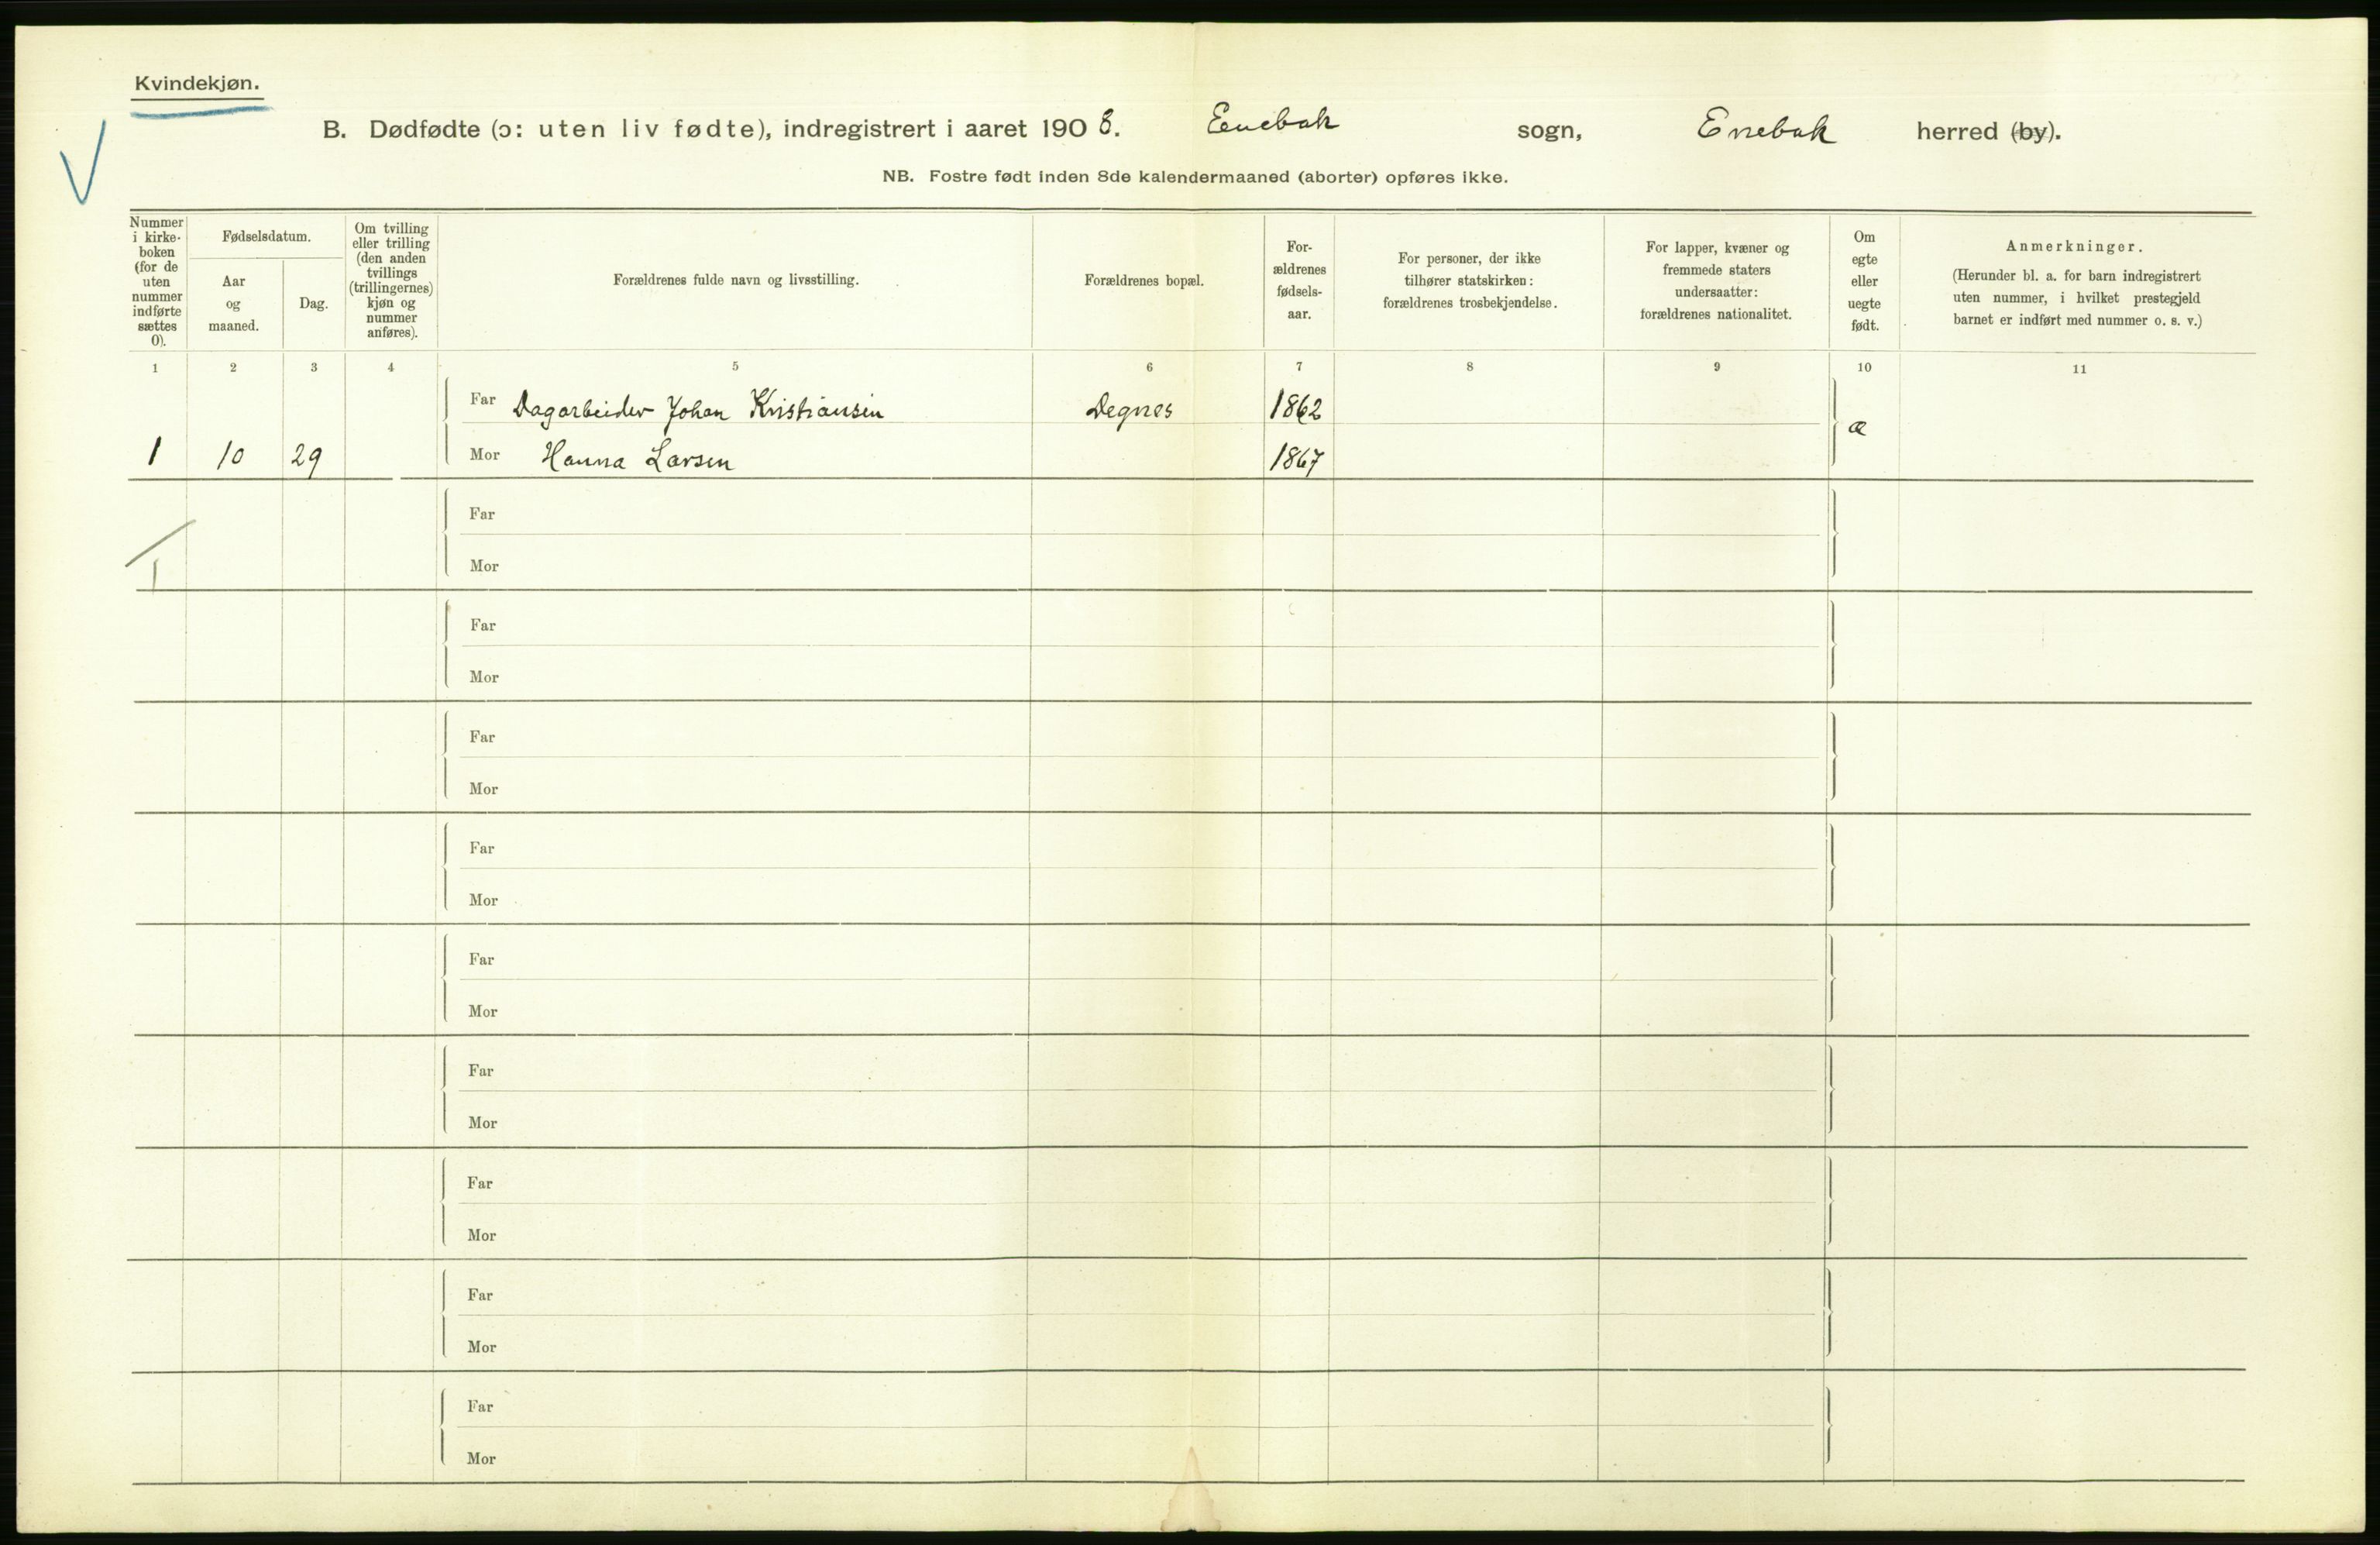 Kvindekjøn.
B. Dødfødte (ɔ: uten liv fødte), indregistrert i aaret 1908. Enebak sogn, Enebak herred (by).
NB. Fostre født inden 8de kalendermaaned (aborter) opføres ikke.
Nummer
i kirke-
boken
(for de
uten
nummer
indførte
sættes
0).
Fødselsdatum.
Aar
og
maaned.
Dag.
Om tvilling
eller trilling
(den anden
tvillings
(trillingernes)
kjøn og
nummer
anføres).
Forældrenes fulde navn og livsstilling.
Forældrenes bopæl.
For-
ældrenes
fødsels-
aar.
For personer, der ikke
tilhører statskirken:
forældrenes trosbekjendelse.
For lapper, kvæner og
fremmede staters
undersaatter:
forældrenes nationalitet.
Om
egte
eller
uegte
født.
Anmerkninger.
(Herunder bl. a. for barn indregistrert
uten nummer, i hvilket prestegjeld
barnet er indført med nummer o. s. v.)
1 2 3 4 5 6 7 8 9 10 11
Far Dagarbeider Johan Kristiansen Degnes 1862
æ
1 10 29 Mor Hanna Larsen 1867
Far
Mor
Far
Mor
Far
Mor
Far
Mor
Far
Mor
Far
Mor
Far
Mor
Far
Mor
Far
Mor